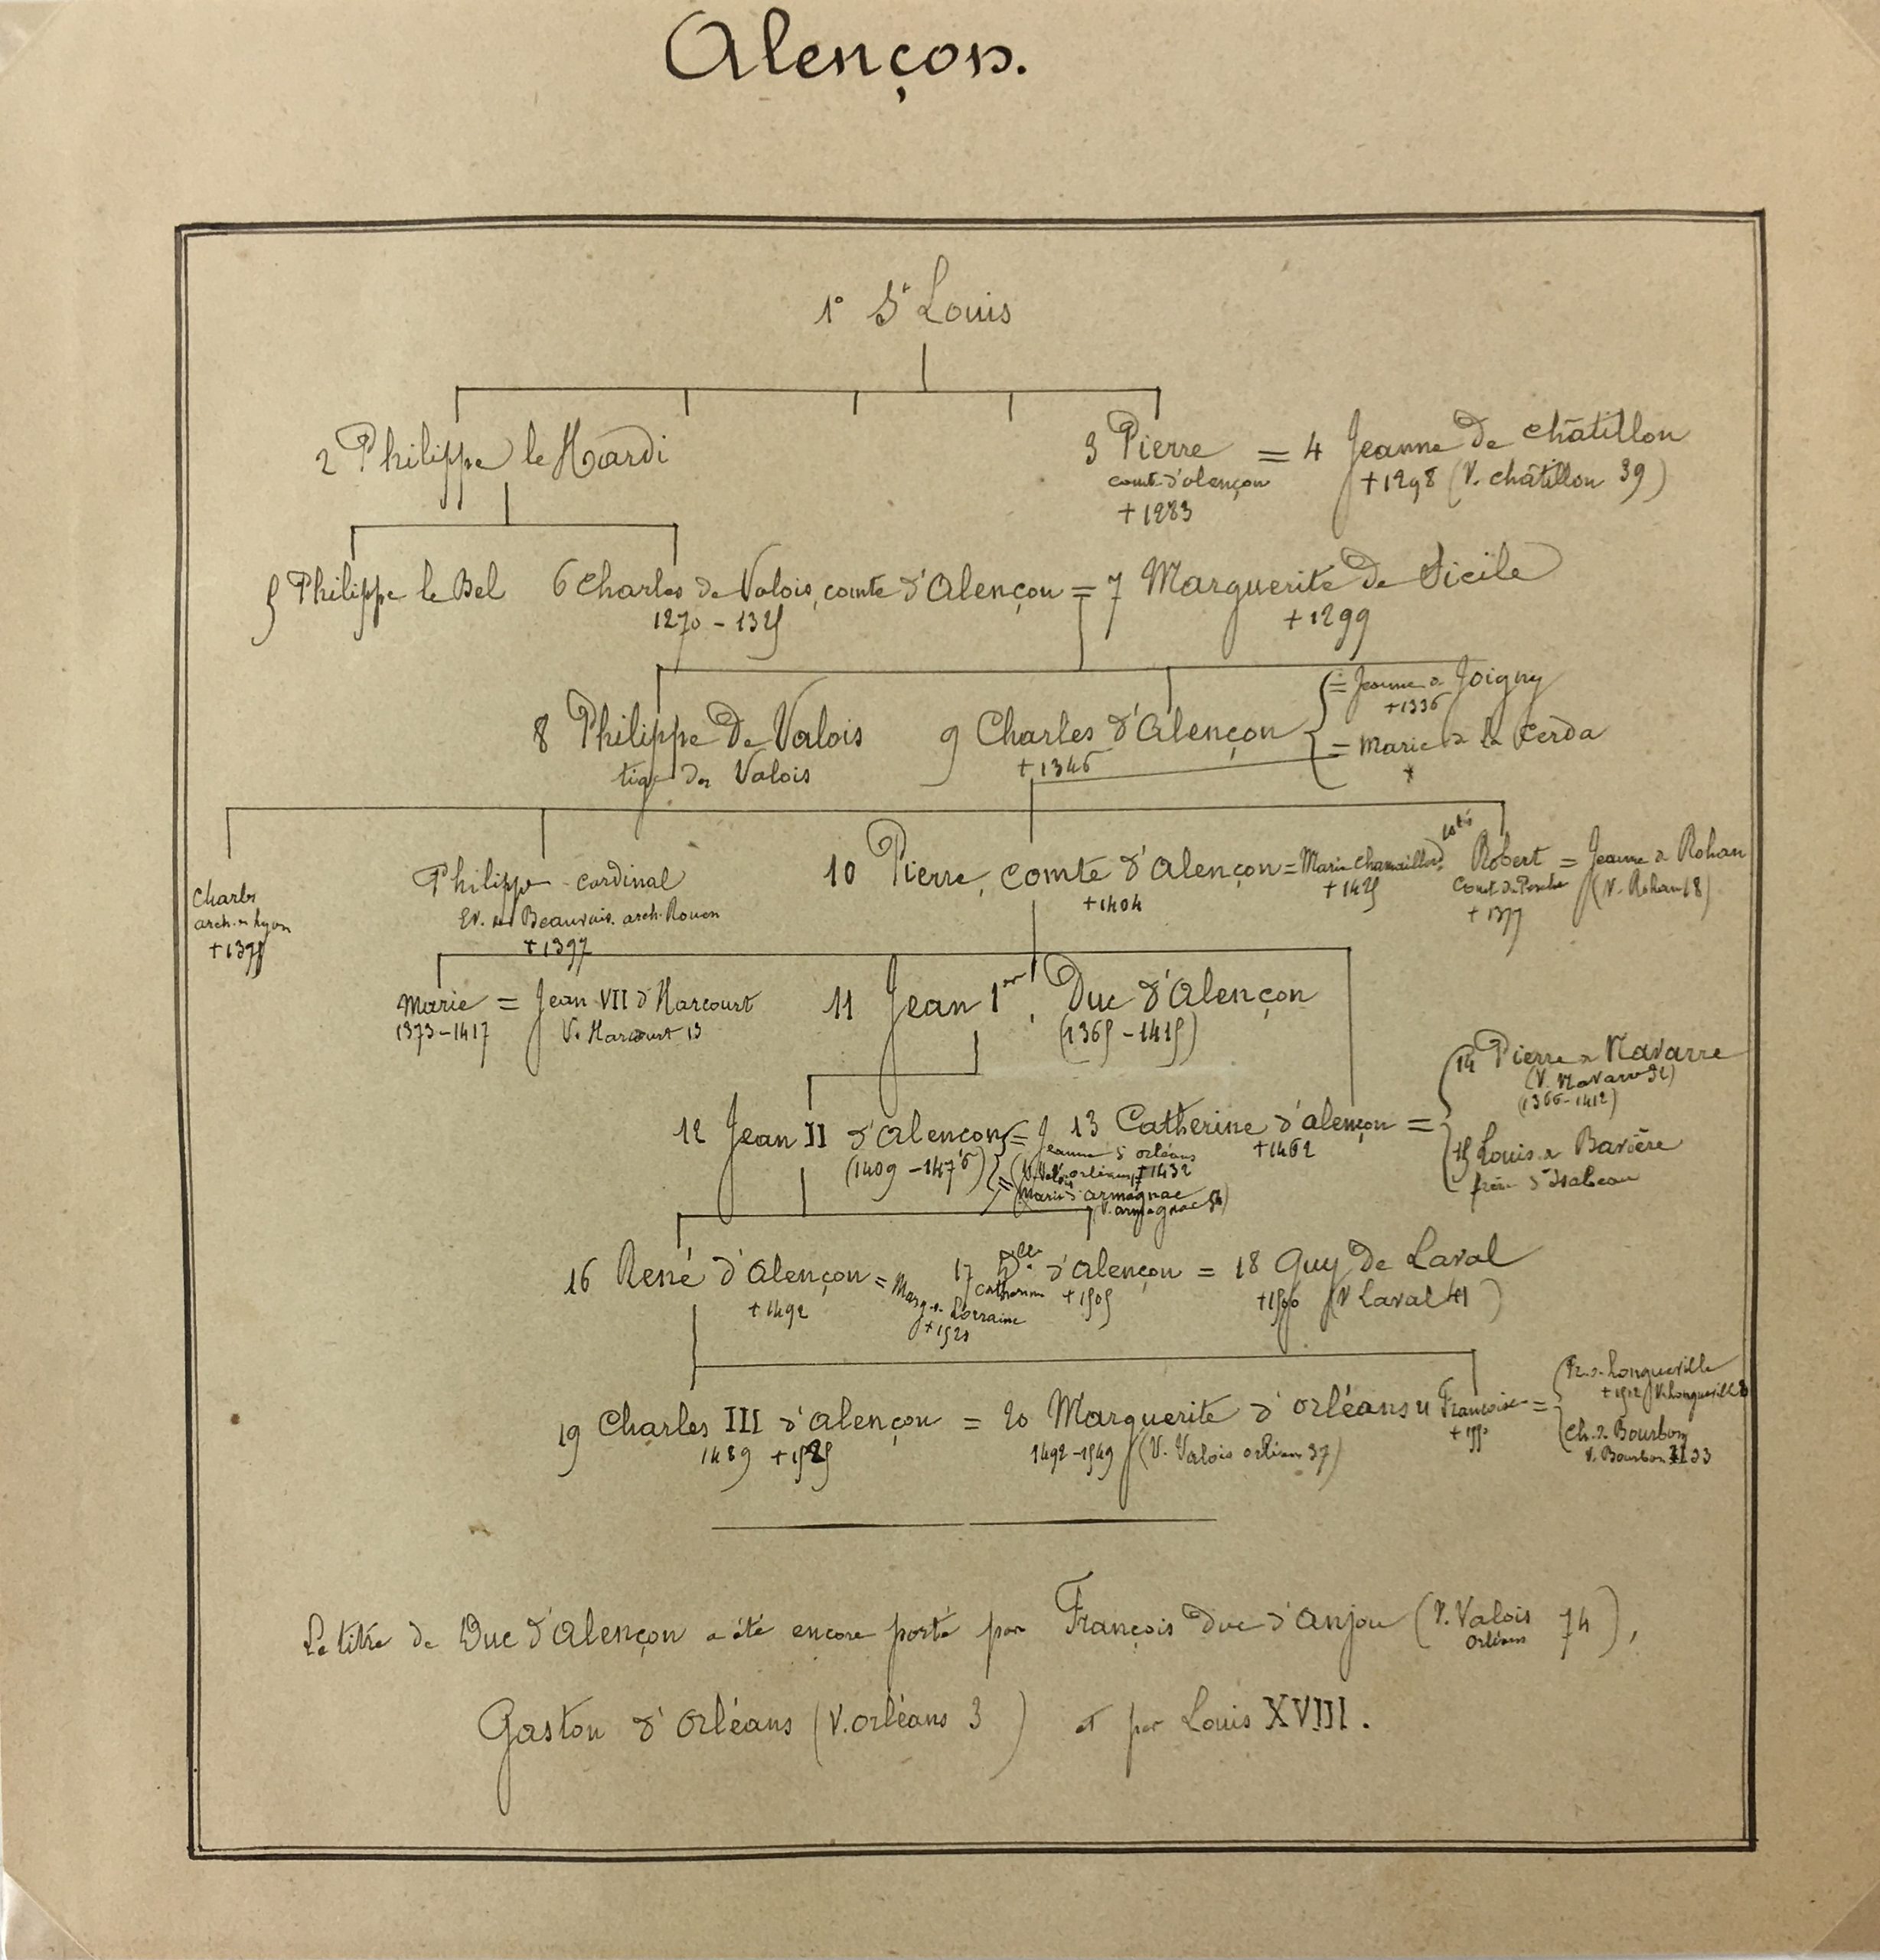 Alençon.
1° St Louis
2 Philippe le Hardi
3 Pierre = 4 Jeanne de châtillon
comte d'alençon
+ 1283
+ 1298 (V. châtillon 39)
5 Philippe le Bel
6 Charles de Valois, comte d'Alençon = 7 Marguerite de Sicile
1270 - 1325
+ 1299
8 Philippe de Valois
tige des Valois
9 Charles d'Alençon
+ 1346
= Jeanne de Joigny
+ 1336
= Marie de la Cerda
Charles
arch. de Lyon
+ 1375
Philippe - cardinal
Ev. de Beauvais. arch. Rouen
+ 1397
10 Pierre, comte d'Alençon = Marie Chamaillard
+ 1404
+ 1425
Robert = Jeanne de Rohan
Comte du Perche
+ 1377
(V. Rohan 18)
Marie = Jean VII d'Harcourt
1373-1417
V. Harcourt 13
11 Jean 1er, Duc d'Alençon
(1365 - 1415)
12 Jean II d'Alençon
(1409 - 1476)
= Jeanne d'orléans
(V. Valois orléans + 1432
= Marie d'armagnac
(V. armagnac
13 Catherine d'alençon =
+ 1462
14 Pierre de Navarre
(V. Navarre
(1366-1412)
15 Louis de Bavière
frère d'Isabeau
16 René d'Alençon = Marg. de Lorraine
+ 1492
+ 1521
17 Dlle d'Alençon = 18 Guy de Laval
Catherine
+ 1505
+ 1500 (V Laval 41)
19 Charles III d'alençon = 20 Marguerite d'orléans
1489 + 1525
1492-1549 (V. Valois orléans 37)
Françoise =
+ 1550
de Longueville
+ 1512 V. Longueville
Ch. de Bourbon
V. Bourbon 33
Le titre de Duc d'Alençon a été encore porté par François duc d'Anjou (V. Valois Orléans 74),
Gaston d'Orléans (V. orléans 3) et par Louis XVIII.